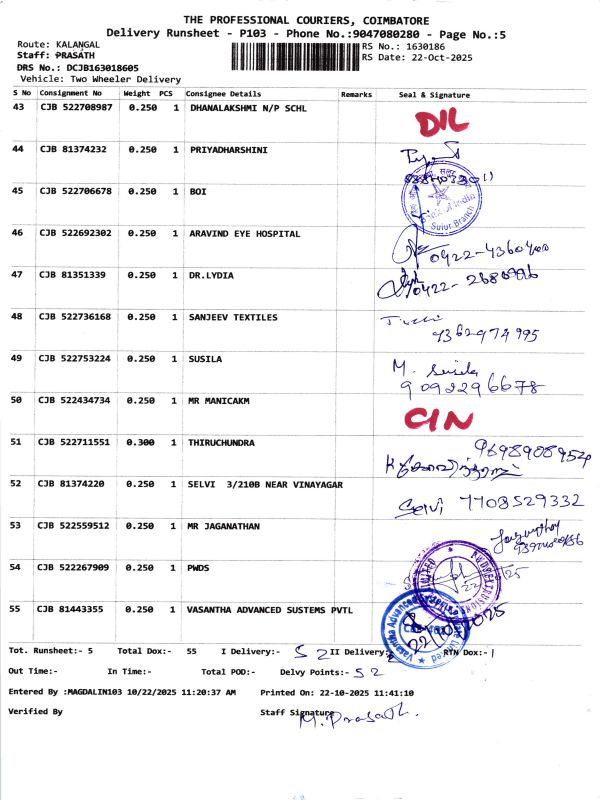 THE PROFESSIONAL COURIERS, COIMBATORE
Delivery Runsheet - P103 - Phone No.:9047080280 - Page No.:5
Route: KALANGAL
RS No.: 1630186
Staff: PRASATH
RS Date: 22-Oct-2025
DRS No.: DCJB163018605
Vehicle: Two Wheeler Delivery
S No Consignment No Weight PCS Consignee Details Remarks Seal & Signature
43 CJB 522708987 0.250 1 DHANALAKSHMI N/P SCHL DIL
44 CJB 81374232 0.250 1 PRIYADHARSHINI
45 CJB 522706678 0.250 1 BOI Sulur Branch
46 CJB 522692302 0.250 1 ARAVIND EYE HOSPITAL 0422-4360400
47 CJB 81351339 0.250 1 DR.LYDIA 0422-2680996
48 CJB 522736168 0.250 1 SANJEEV TEXTILES 9362974995
49 CJB 522753224 0.250 1 SUSILA M. Susila
9092296678
50 CJB 522434734 0.250 1 MR MANICAKM CIN
51 CJB 522711551 0.300 1 THIRUCHUNDRA
52 CJB 81374220 0.250 1 SELVI 3/210B NEAR VINAYAGAR Selvi 7708529332
53 CJB 522559512 0.250 1 MR JAGANATHAN
54 CJB 522267909 0.250 1 PWDS
55 CJB 81443355 0.250 1 VASANTHA ADVANCED SUSTEMS PVTL 22/10/2025
Tot. Runsheet:- 5 Total Dox:- 55 I Delivery:- 52 II Delivery:- RTN Dox:- 1
Out Time:- In Time:- Total POD:- Delvy Points:- 52
Entered By :MAGDALIN103 10/22/2025 11:20:37 AM Printed On: 22-10-2025 11:41:10
Verified By Staff Signature M. Prasath.